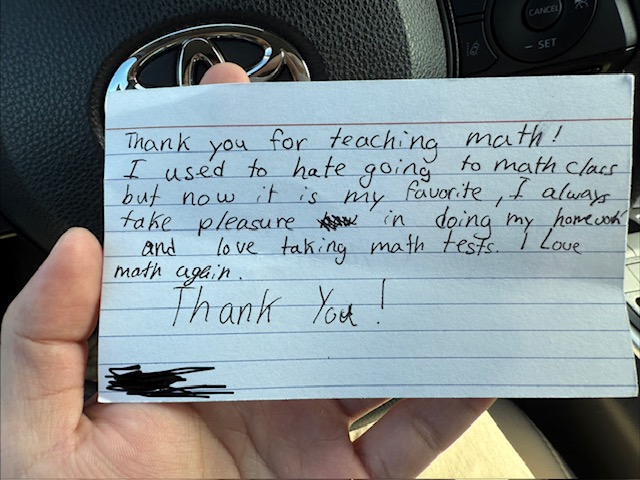 CANCEL
- SET
Thank you for teaching math!
I used to hate going to math class
but now it is my favorite, I always
take pleasure in doing my homework
and love taking math tests. I Love
math again.
Thank You!